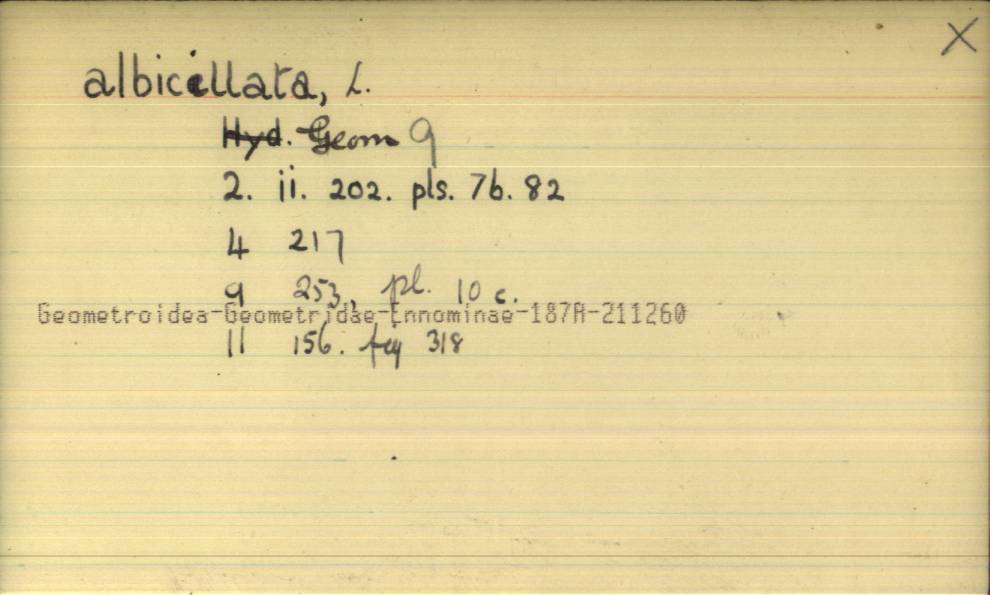 X
albicillata, L.
Hyd. Geom 9
2. ii. 202. pls. 76. 82
4 217
9 253, pl. 10 c.
Geometroidea-Geometridae-Ennominae-187A-211260
11 156. fig 318